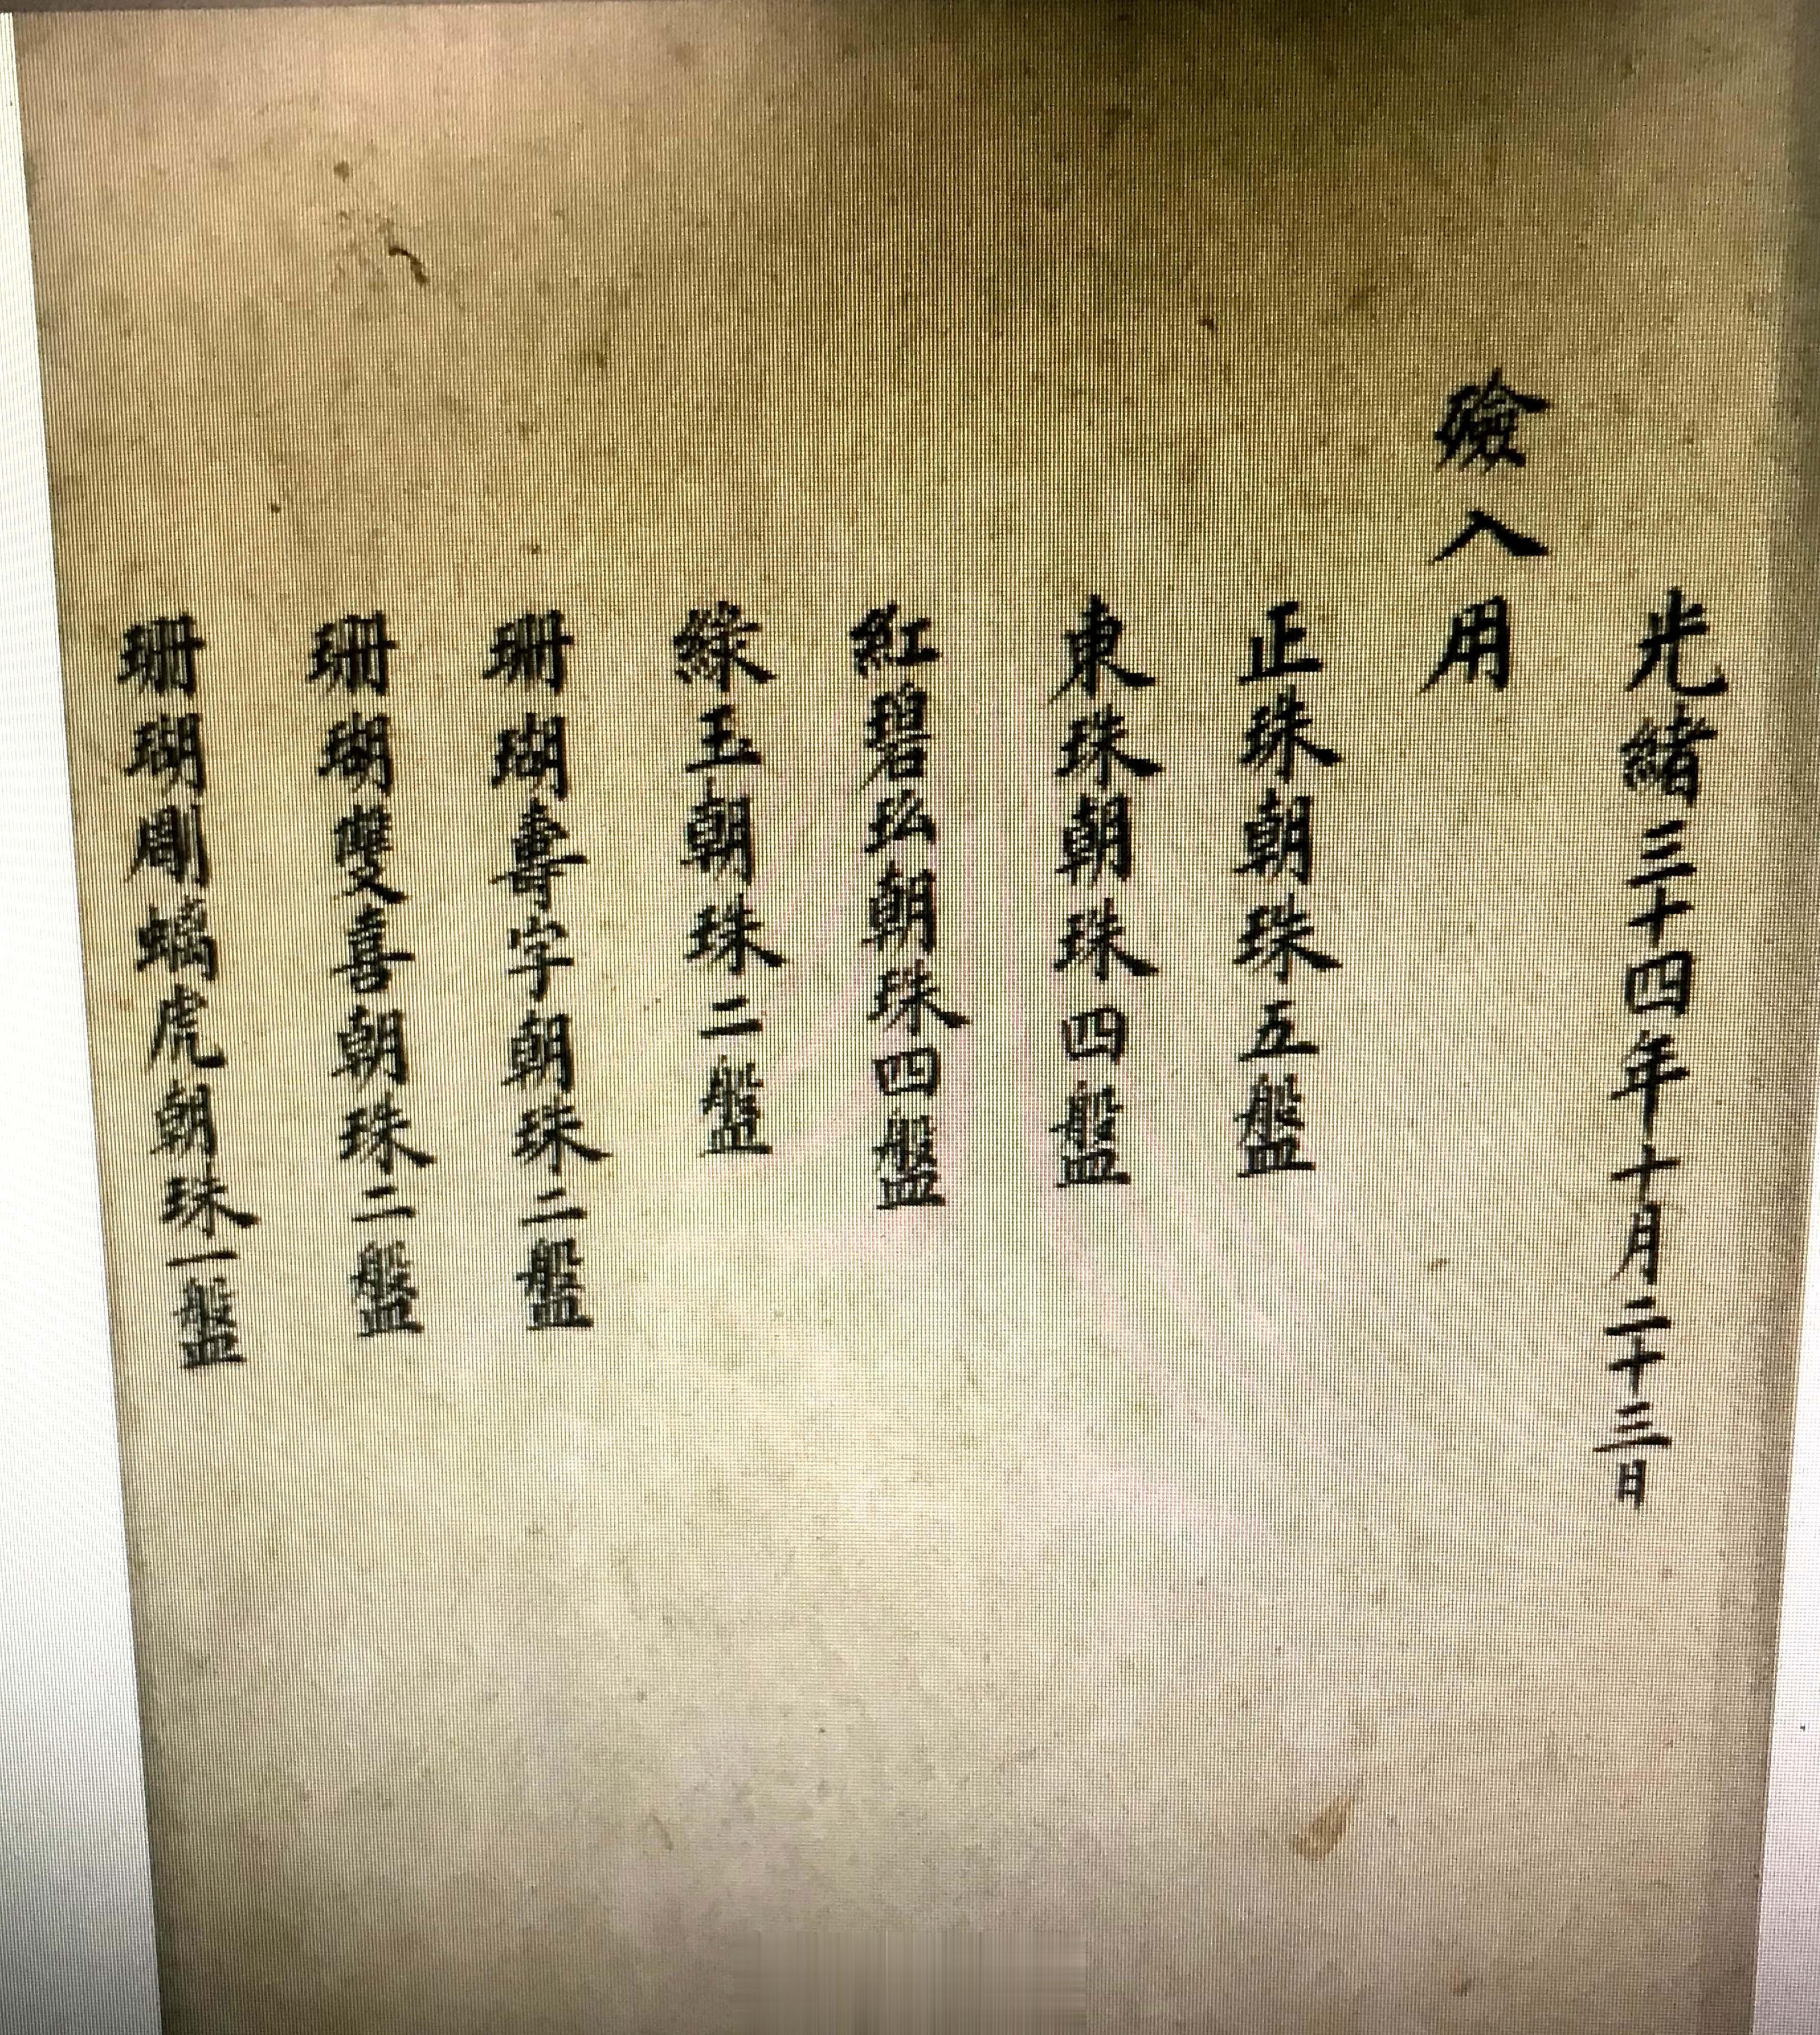 光緒三十四年十月二十三日
殮入用
正珠朝珠五盤
東珠朝珠四盤
紅碧玜朝珠四盤
綠玉朝珠二盤
珊瑚壽字朝珠二盤
珊瑚雙喜朝珠二盤
珊瑚彫螭虎朝珠一盤